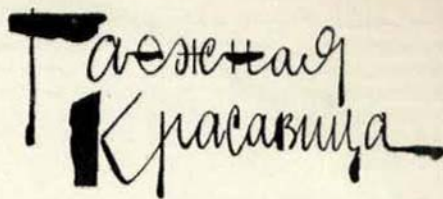 Таежная
Красавица